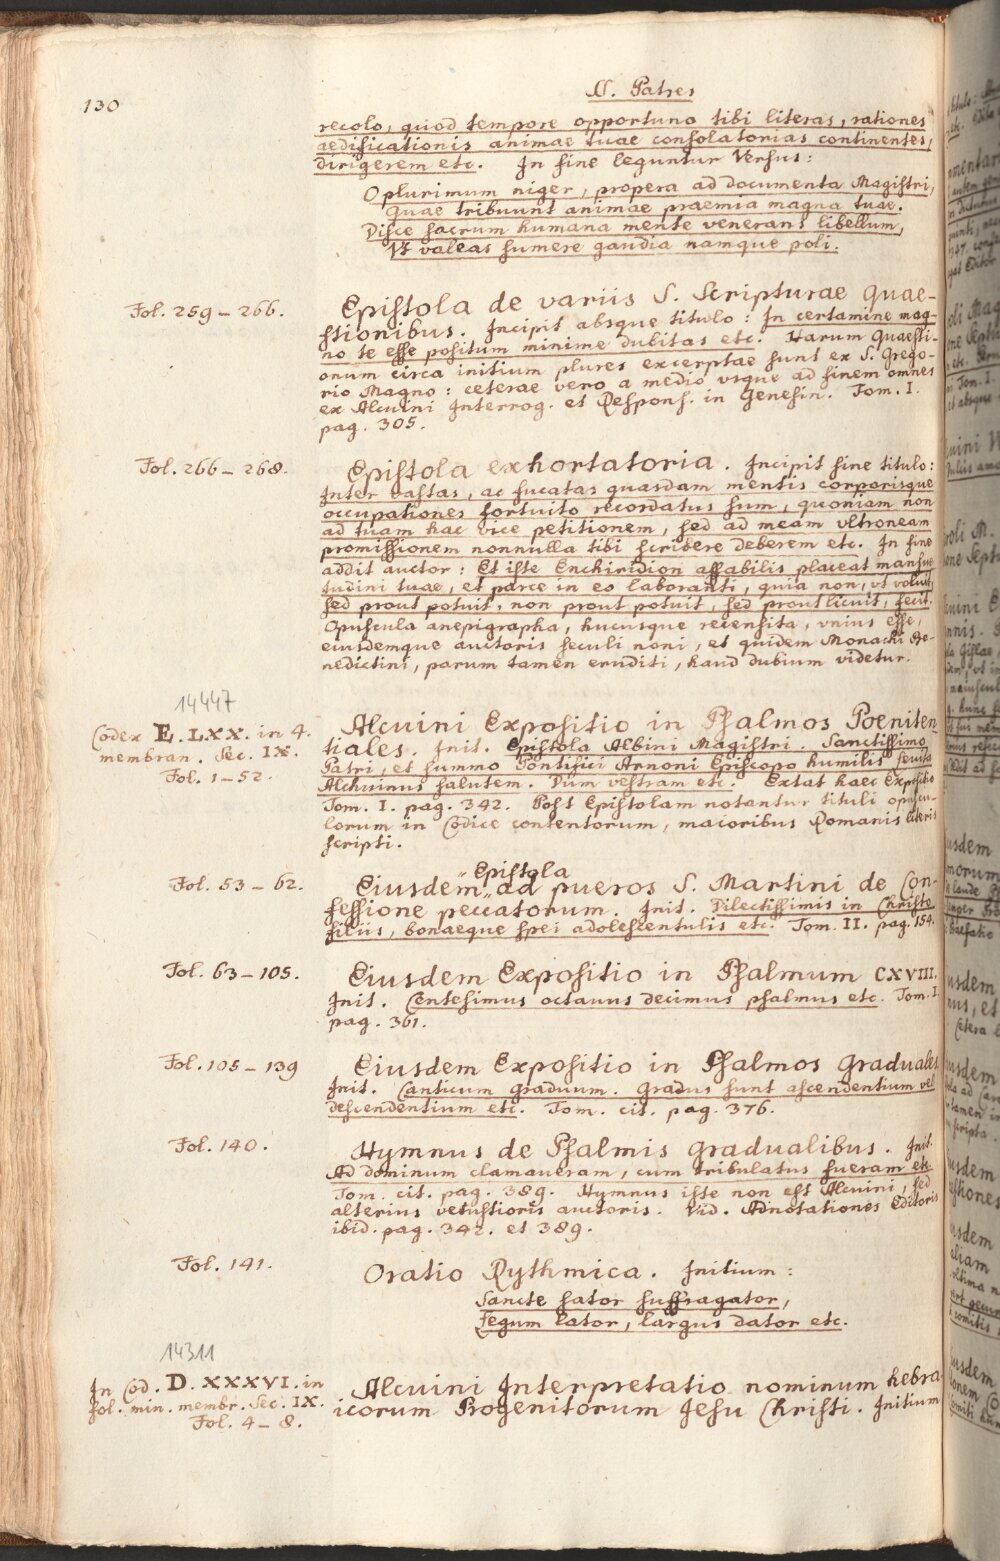 130
SS. Patres
recolo, quod tempore opportuno tibi literas, rationes
aedificationis animae tuae consolatorias continentes,
dirigerem etc. In fine leguntur Versus:
O plurimum niger, propera ad documenta Magistri,
Quae tribuunt animae praemia magna tuae.
Disce sacrum humana mente venerans libellum,
Vt valeas sumere gaudia namque poli.
Fol. 259 – 266.
Epistola de variis S. Scripturae Quae-
stionibus. Incipit absque titulo: In certamine mag-
no te esse positum minime dubitas etc. Harum Quaesti-
onum circa initium plures excerptae sunt ex S. Grego-
rio Magno: ceterae vero a medio vsque ad finem omnes
ex Alcuini Interrog. et Respons. in Genesin. Tom. I.
pag. 305.
Fol. 266 – 268.
Epistola exhortatoria. Incipit sine titulo:
Inter vastas, ac fucatas quasdam mentis corporisque
occupationes fortuito recordatus sum, quoniam non
ad tuam hac vice petitionem, sed ad meam vltroneam
promissionem nonnulla tibi scribere deberem etc. In fine
addit auctor: Et iste Enchiridion affabilis placeat mansue
tudini tuae, et parce in eo laboranti, quia non, vt voluit,
sed prout potuit, non prout potuit, sed prout licuit, fecit.
Opuscula anepigrapha, hucusque recensita, vnius esse,
eiusdemque auctoris seculi noni, et quidem Monachi Be-
nedictini, parum tamen eruditi, haud dubium videtur.
14447
Codex E. LXX. in 4.
membran. Sec. IX.
Fol. 1 – 52.
Alcuini Expositio in Psalmos Poeniten
tiales. Init. Epistola Albini Magistri. Sanctissimo
Patri, et summo Pontifici Arnoni Episcopo humilis
Alchuinus salutem. Dum vestram etc. Extat haec Expositio
Tom. I. pag. 342. Post Epistolam notantur tituli opuscu-
lorum in Codice contentorum, maioribus Romanis literis
scripti.
Fol. 53 – 62.
Epistola
Eiusdem ad pueros S. Martini de Con-
fessione peccatorum. Init. Dilectissimis in Christo
filiis, bonaeque spei adolescentulis etc. Tom. II. pag. 154.
Fol. 63 – 105.
Eiusdem Expositio in Psalmum CXVIII.
Init. Centesimus octavus decimus psalmus etc. Tom. I.
pag. 361.
Fol. 105 – 139
Eiusdem Expositio in Psalmos Graduales
Init. Canticum graduum. Gradus sunt ascendentium vel
descendentium etc. Tom. cit. pag. 376.
Fol. 140.
Hymnus de Psalmis gradualibus. Init.
Ad dominum clamaueram, cum tribulatus fueram etc.
Tom. cit. pag. 389. Hymnus iste non est Alcuini, sed
alterius vetustioris auctoris. Vid. Adnotationes Editoris
ibid. pag. 342. et 389.
Fol. 141.
Oratio Rythmica. Initium:
Sancte sator suffragator,
Legum lator, largus dator etc.
14311
In Cod. D. XXXVI. in
fol. min. membr. Sec. IX.
Fol. 4 – 8.
Alcuini Interpretatio nominum hebra
icorum Progenitorum Jesu Christi. Initium